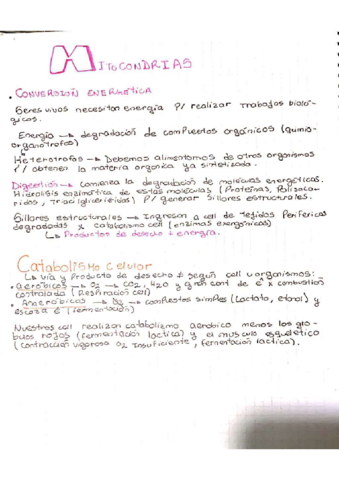 MITOCONDRIAS
• CONVERSIÓN ENERGÉTICA
Seres vivos necesitan energía p/ realizar trabajos bioló-
gicos.
Energía → degradación de compuestos orgánicos (quimio-
organotrofos)
Heterotrofos → Debemos alimentarnos de otros organismos
p/ obtener la materia organica ya sintetizada.
Digestión → comienza la degradación de moléculas energéticas.
Hidrolisis enzimática de estas moléculas (Proteínas, Polisaca-
ridos, Triacilgliceridos) p/ generar sillares estructurales.
Sillares estructurales → Ingresan a cell de tejidos perifericas
degradadas x catabolismo cell (enzimas exergónicas)
↳ Productos de desecho + energía.
Catabolismo celular
↳ vía y producto de desecho ≠ según cell u organismos:
• Aeróbicos → O2 → CO2, H2O y gran cant de e x combustion
controlada (Respiración cell)
• Anaerobicos → compuestos simples (Lactato, etanol) y
escoza e (fermentación)
Nuestras cell realizan catabolizmo aeróbico menos los glo-
bulos rojos (fermentación lactica) y el musculo esquelético
(contracción vigorosa O2 insuficiente, fermentación lactica).